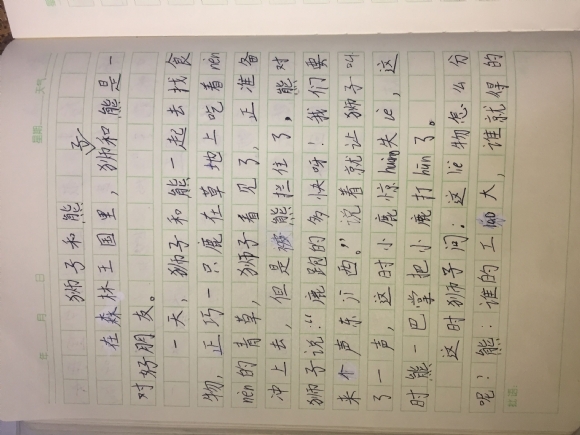 年 月 日 星期 天气
狮子和熊
在森林王国里，狮子和熊是一
对好朋友。
一天，狮子和熊一起去找食
物，正巧一只鹿在草地上吃着nèn
nèn的青草，狮子看见了，正准备
冲上去，但是被熊拦住了，熊对
狮子说：“鹿跑的多快呀！我们要
来个声东jī西。”说着就让狮子叫
了一声，这时小鹿惊huāng失，这
时熊一巴掌把小鹿打hūn了。
这时狮子问：这liè物怎么分
呢！熊：谁的工lao大，谁就得的